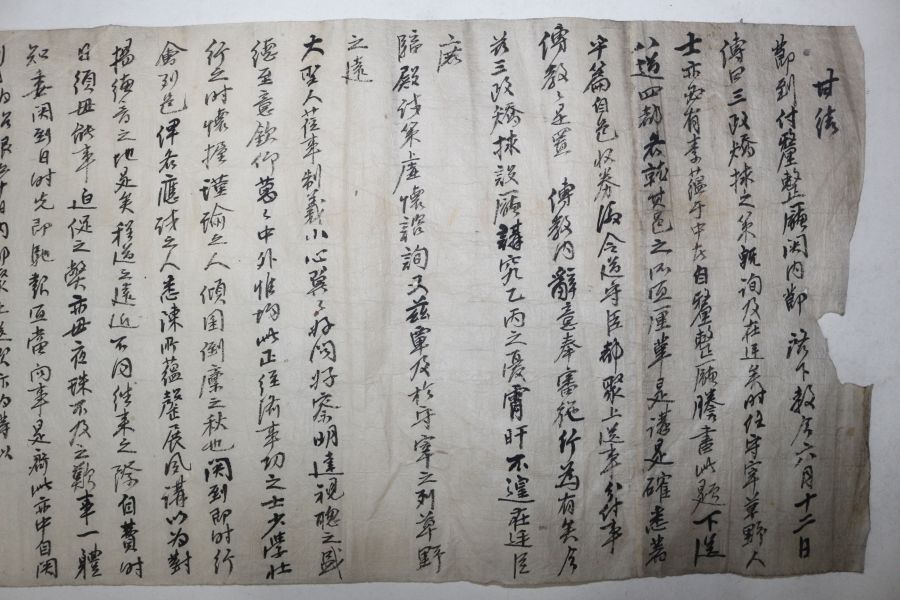 甘結
節到付釐整廳関內節 諾下敎今六月十二日
傳曰三政矯捄之策輒詢及在廷矣時任守宰草野人
士亦必有素蘊于中者自釐整廳謄書此題下送
八道四都各就其邑之所宜釐革是講是確悉著
于篇自邑收券 令道守臣都聚上送事分付事
傳敎是置 傳敎內辭意奉審施行爲有矣今
玆三政矯捄設廳講究乙丙之憂宵旰不遑在廷臣
隣
臨殿試策虛懷諮詢又玆覃及於守宰之列草野
之遠
大聖人莅事制義小心翼翼好問好察明達視聽之盛
德至意欽仰萬萬中外惟均此正經濟事功之士少學壯
行之時懷握瑾瑜之人傾囷倒廩之秋也関到卽時行
會列邑俾各應試之人悉陳所蘊罄展風講以爲對
揚德音之地是矣程道之遠近不同往來之際自費時
日須毋能事迫促之弊亦毋夜 不及之歎事一體
知委関到日時先卽馳報宜當向事是齊此亦中自関